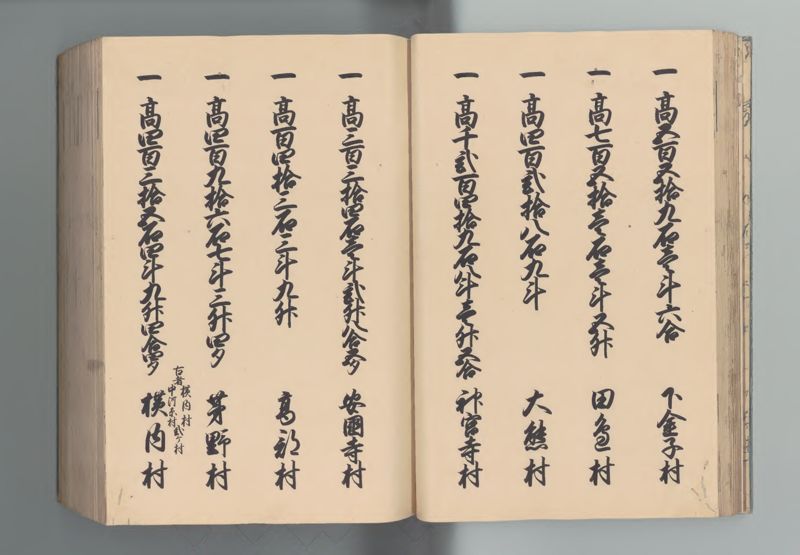 一 高五百五拾九石壱斗六合 下金子村
一 高七百五拾壱石壱斗五升 田辺村
一 高四百弐拾八石九斗 大熊村
一 高千弐百四拾九石八斗壱升五合 神宮寺村
一 高三百三拾四石壱斗弐升八合五夕 安國寺村
一 高百四拾三石三斗九升 高部村
一 高四百九拾六石七斗三升四夕 茅野村
一 高四百三拾五石四斗九升四合四夕 横内村
右者 横内村
中河原村 弐ヶ村